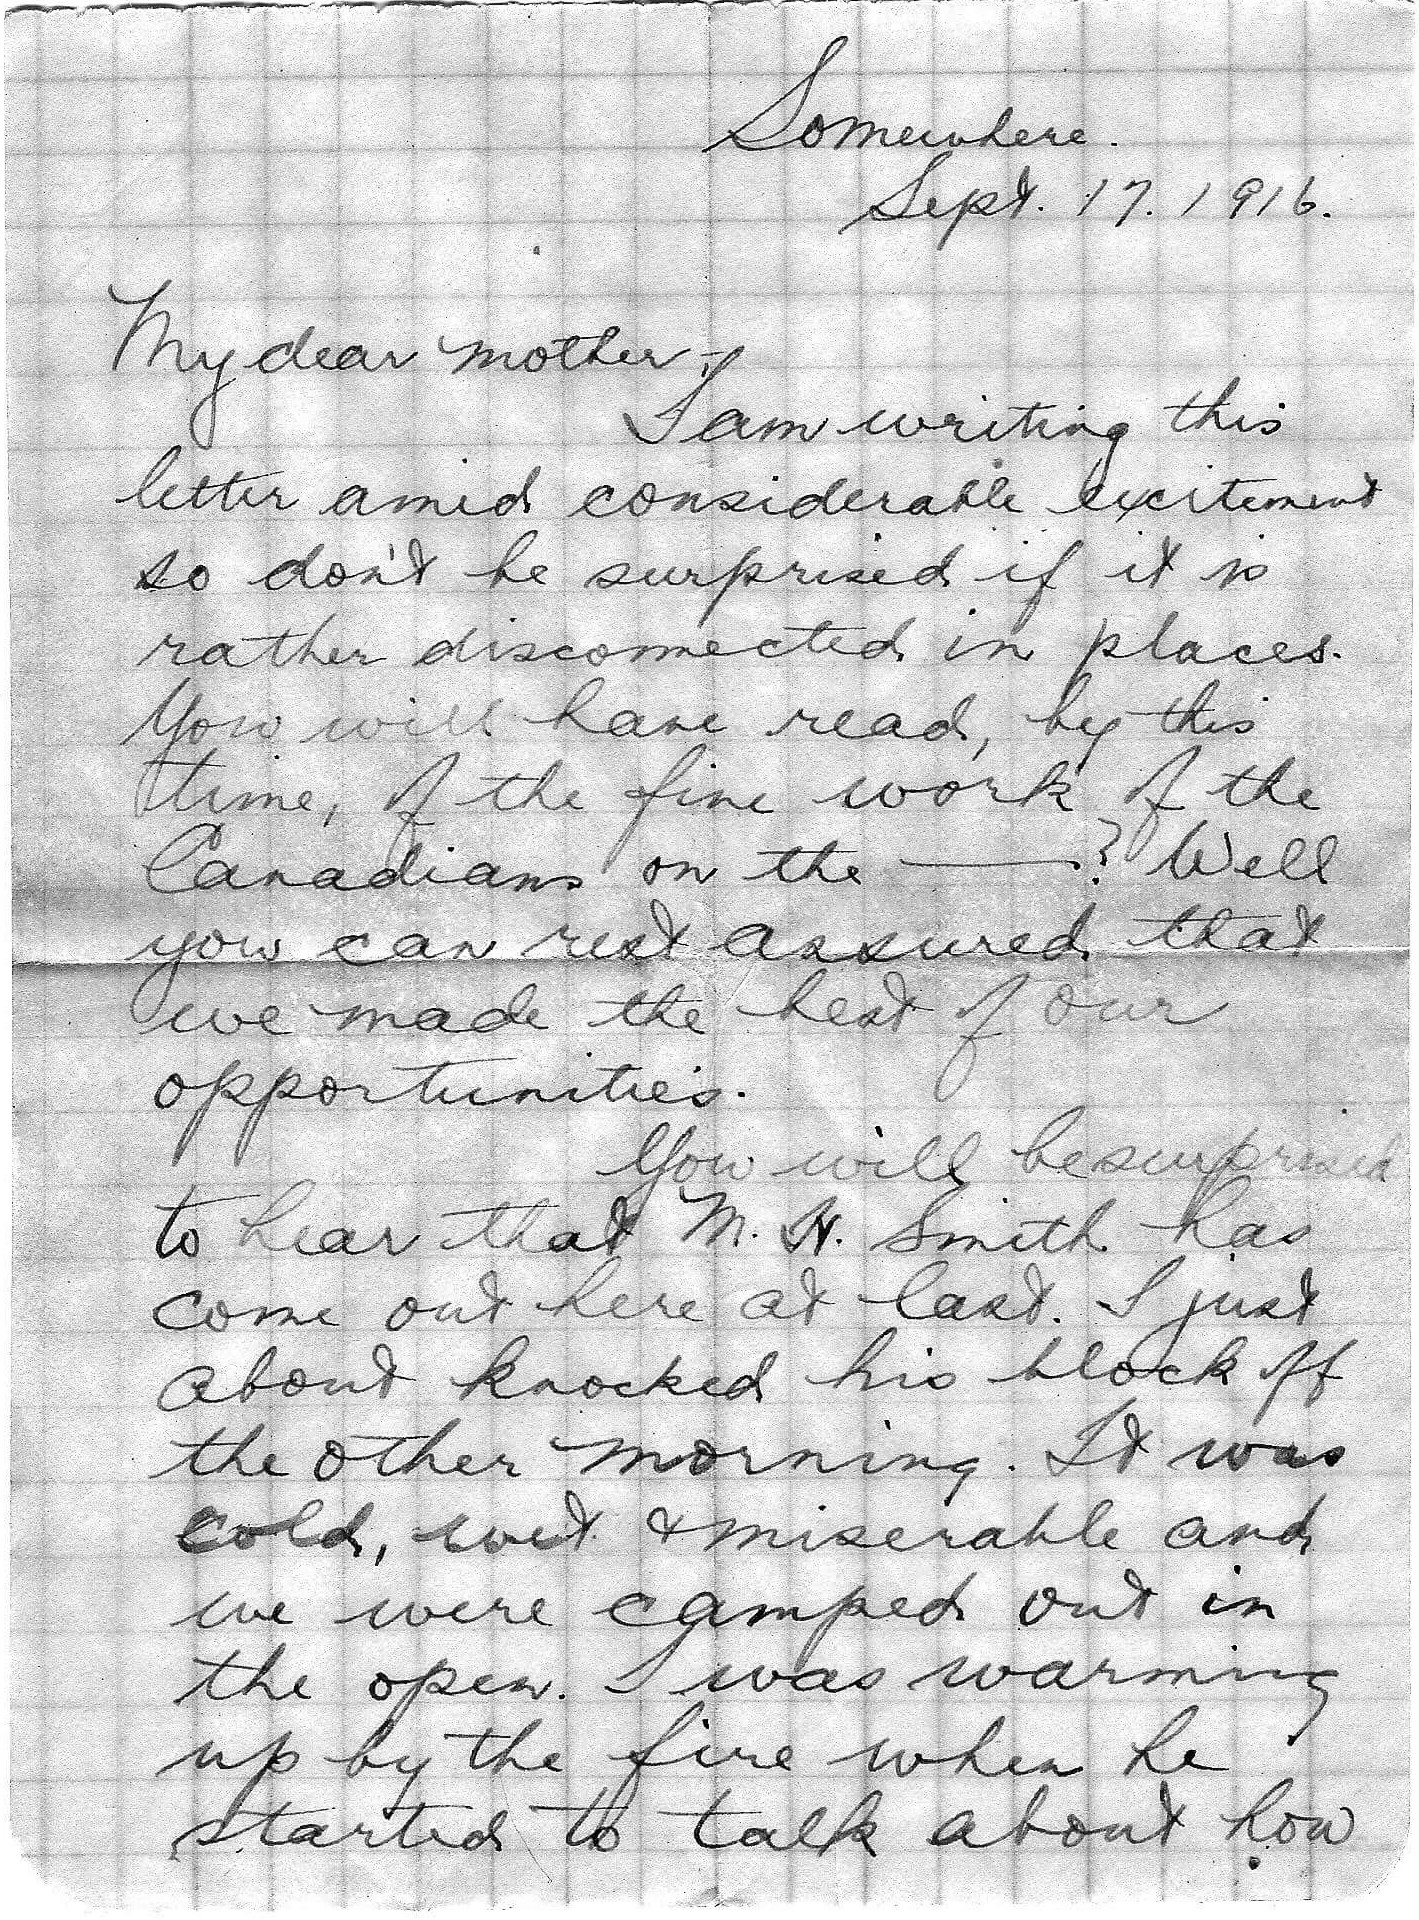 Somewhere.
Sept. 17. 1916.
My dear mother,-
I am writing this
letter amid considerable excitement
so don't be surprised if it is
rather disconnected in places.
You will have read, by this
time, of the fine work of the
Canadians on the ———? Well
you can rest assured that
we made the best of our
opportunities.
You will be surprised
to hear that M. H. Smith has
come out here at last. I just
about knocked his block off
the other morning. It was
cold, wet & miserable and
we were camped out in
the open. I was warming
up by the fire when he
started to talk about how